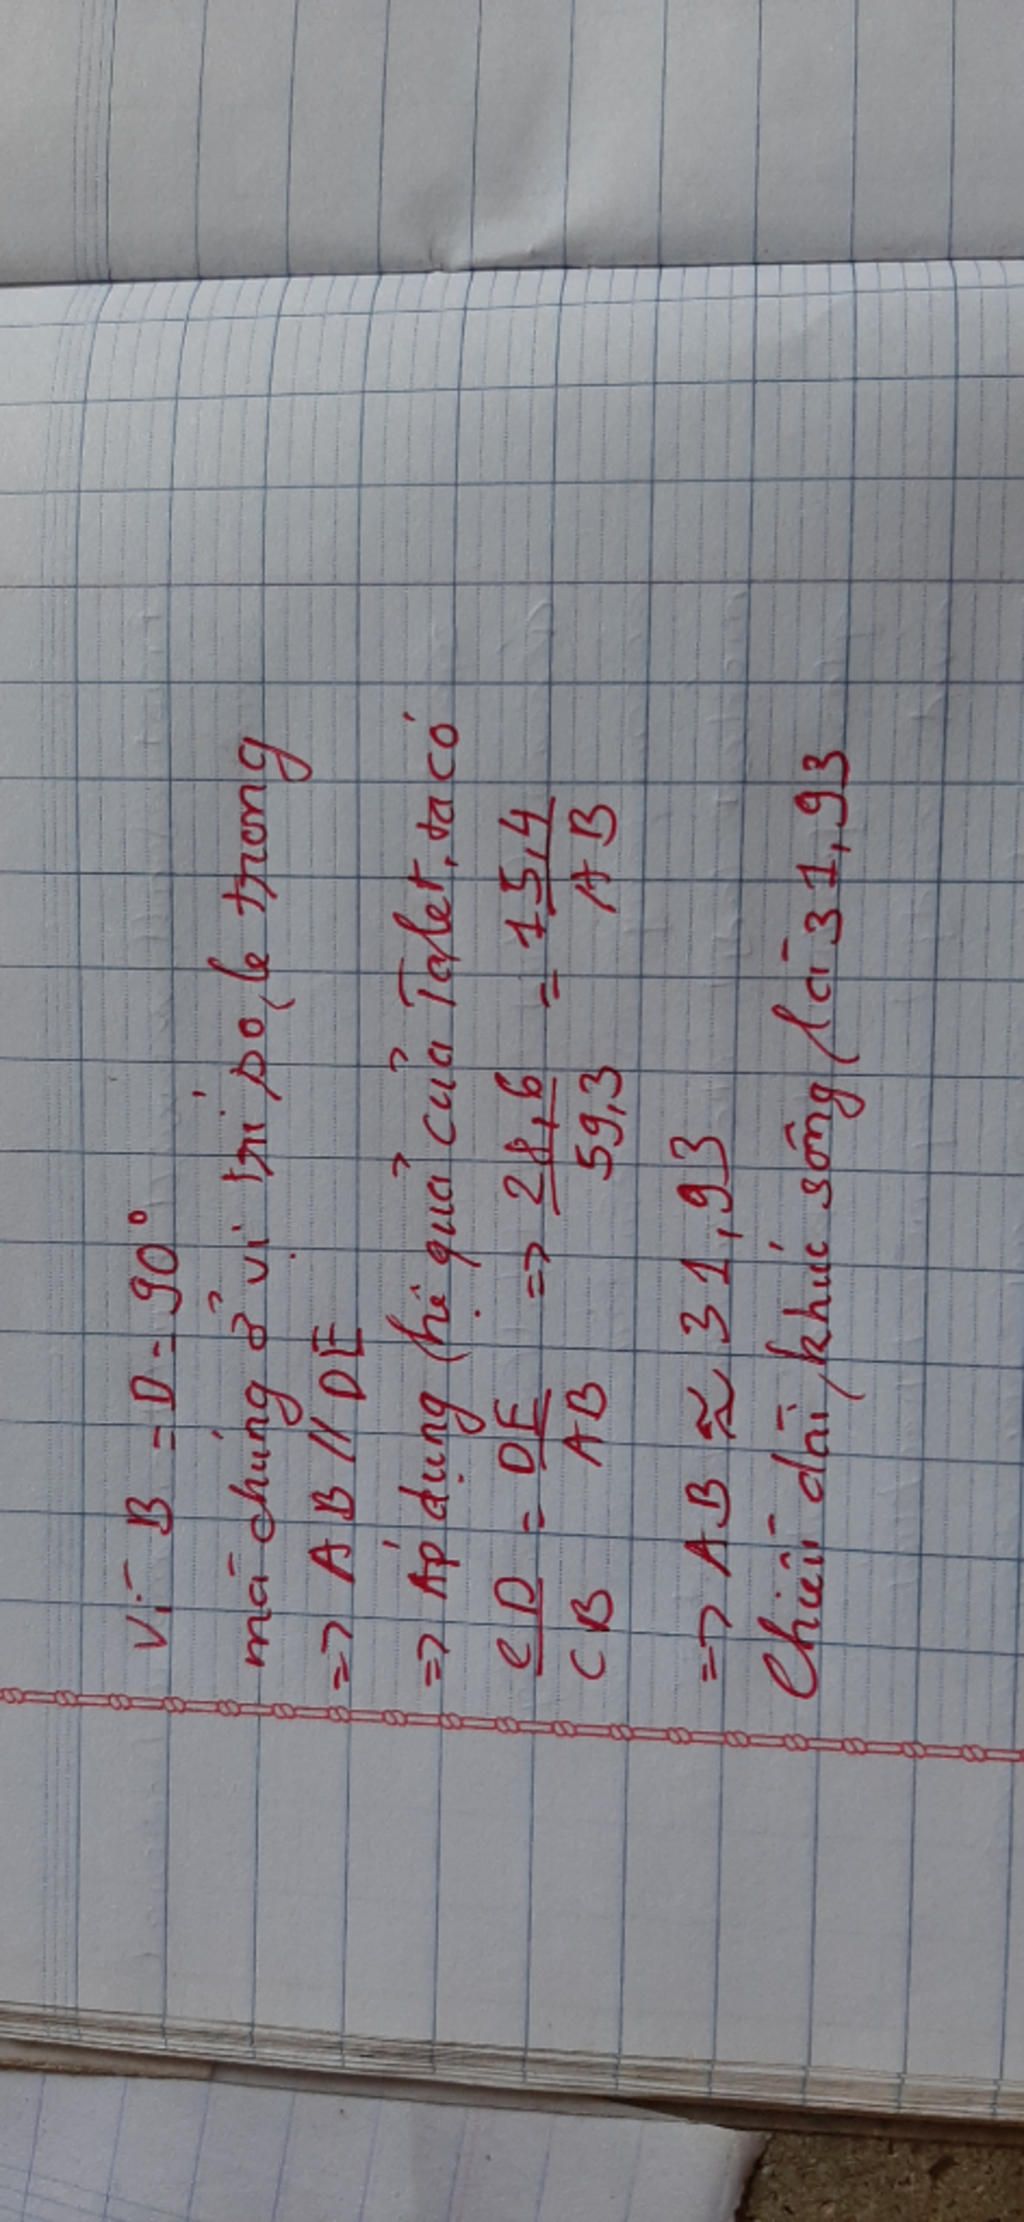 Vì B = D = 90°
mà chúng ở vị trí so le trong
=> AB // DE
=> Áp dụng hệ quả của Talet, ta có
CD/CB = DE/AB => 28,6/59,3 = 15,4/AB
=> AB ≈ 31,93
Chiều dài khúc sông là 31,93